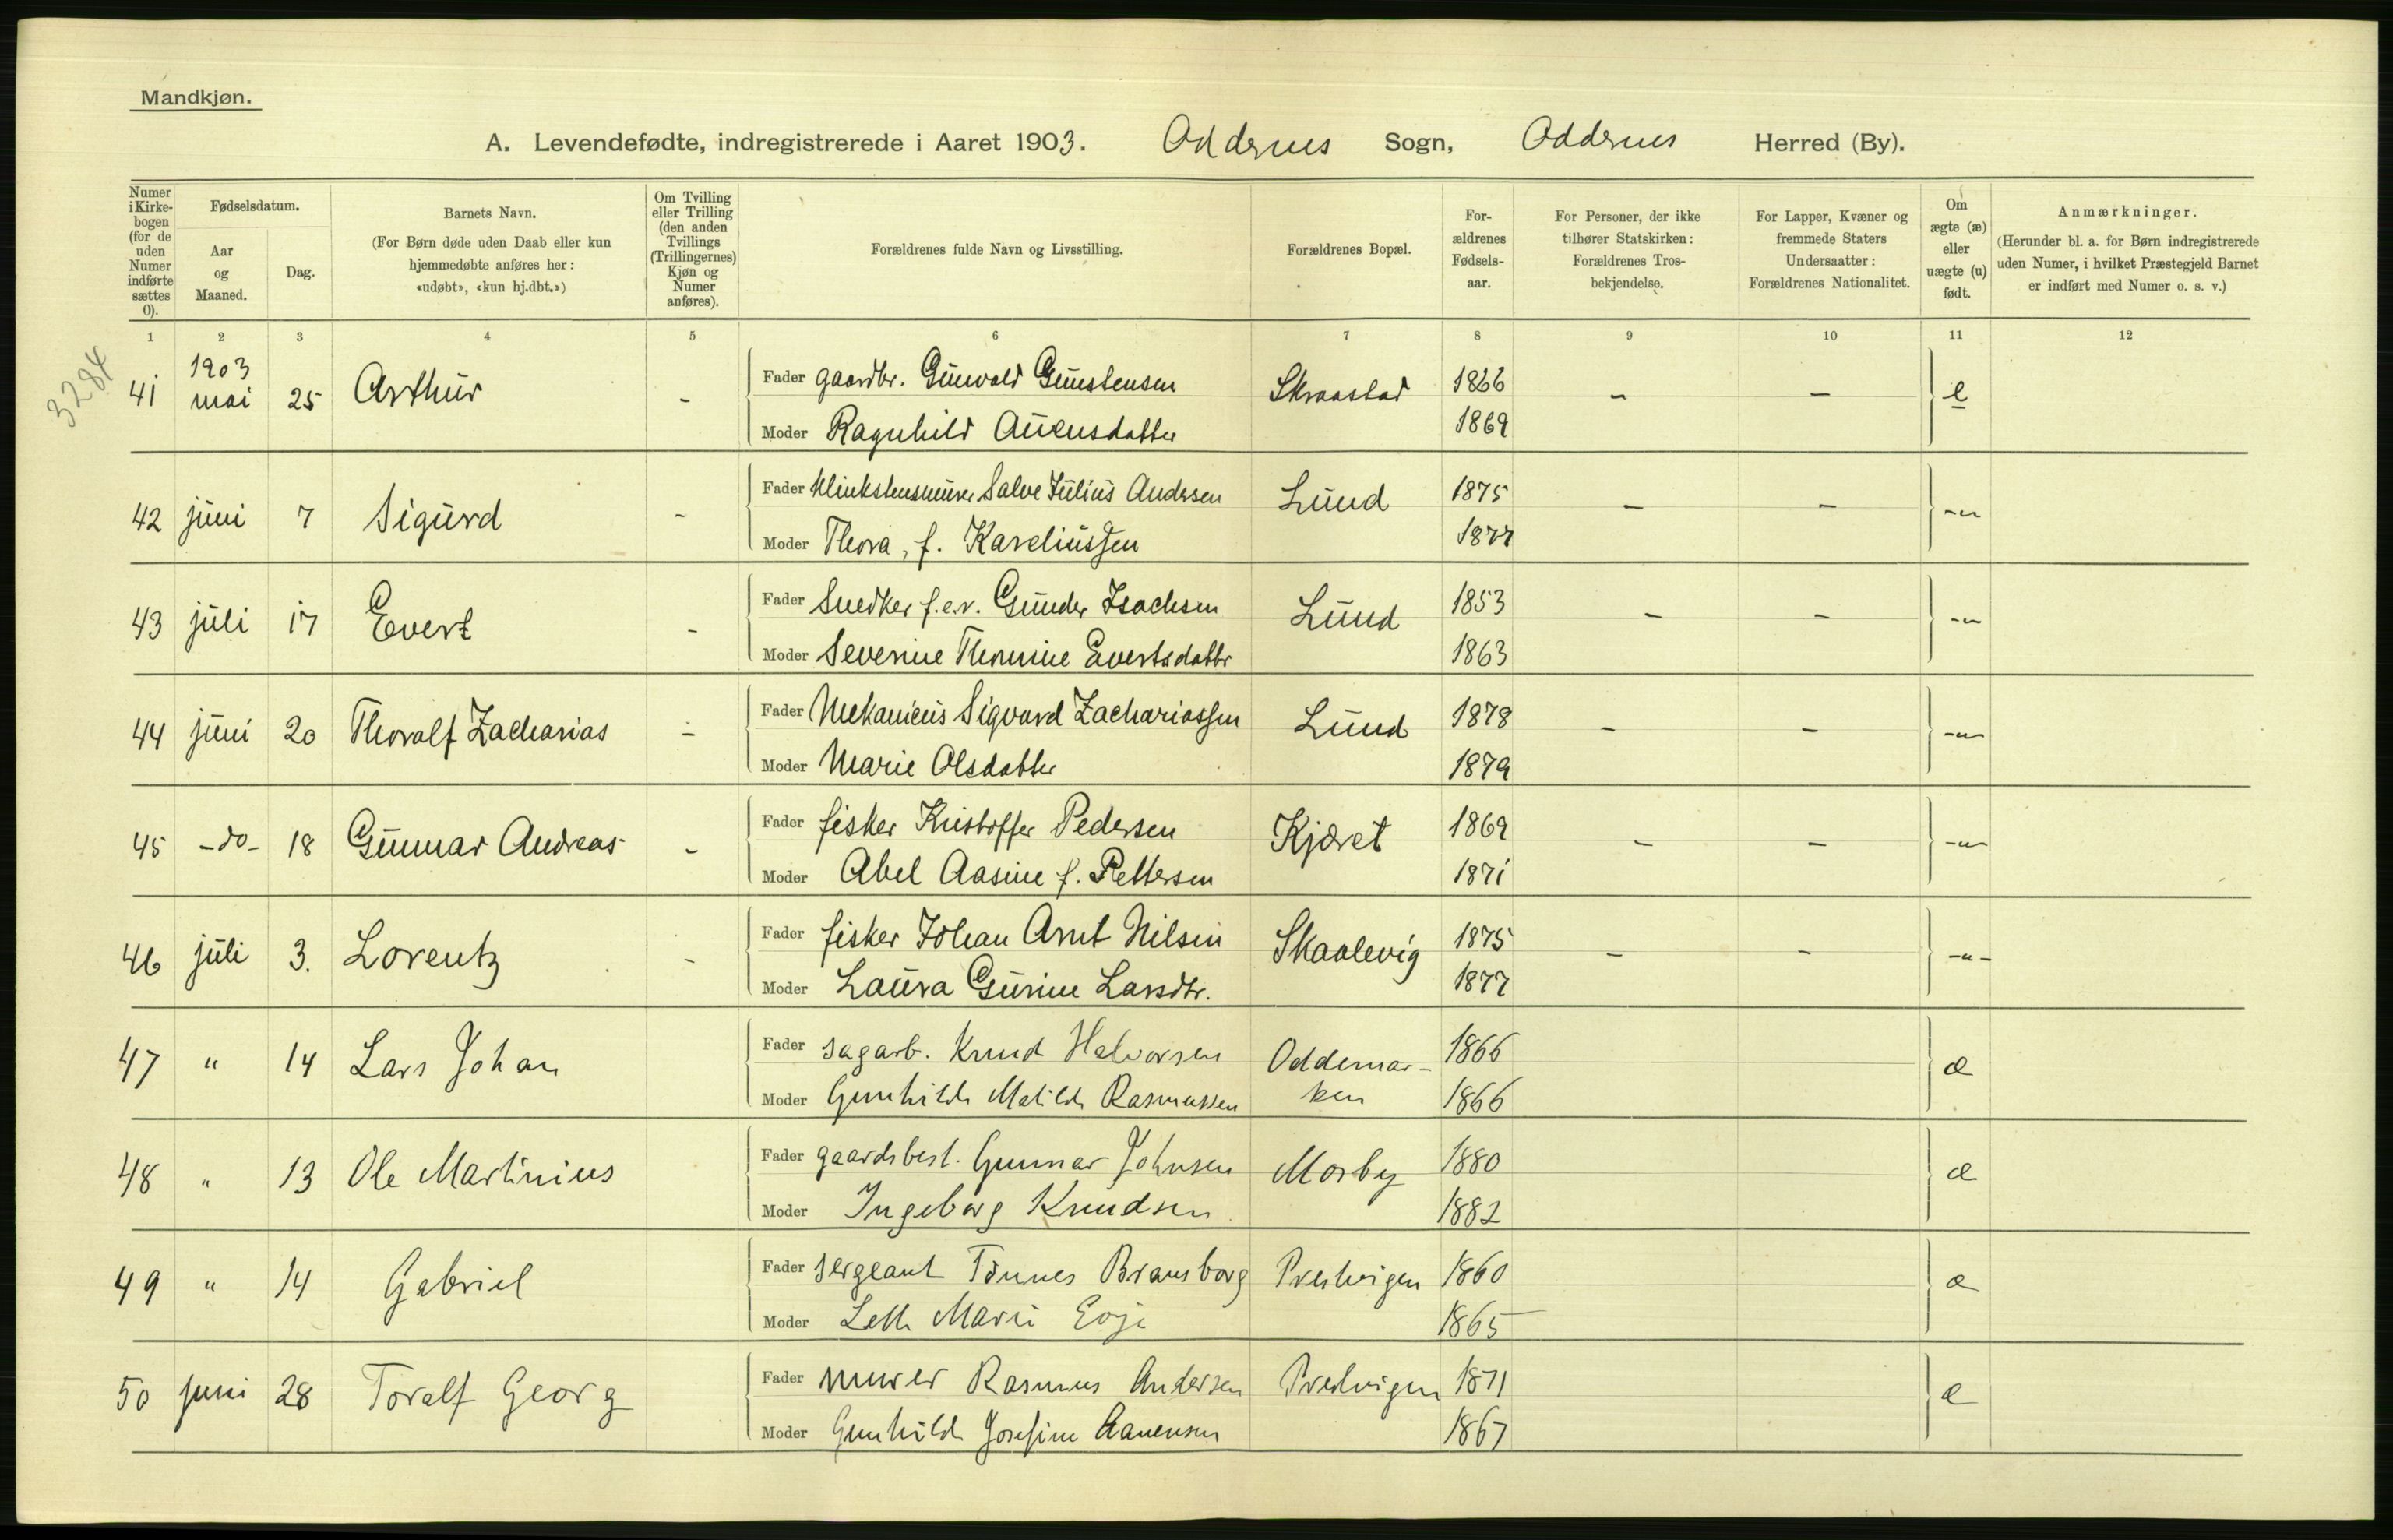 Mandkjøn.
A. Levendefødte, indregistrerede i Aaret 1903. Oddernes Sogn, Oddernes Herred (By).
Numer i Kirke-bogen (for de uden Numer indførte sættes 0).
Fødselsdatum.
Aar og Maaned.
Dag.
Barnets Navn.
(For Børn døde uden Daab eller kun hjemmedøbte anføres her: «udøbt», «kun hj.dbt.»)
Om Tvilling eller Trilling (den anden Tvillings (Trillingernes) Kjøn og Numer anføres).
Forældrenes fulde Navn og Livsstilling.
Forældrenes Bopæl.
For-ældrenes Fødsels-aar.
For Personer, der ikke tilhører Statskirken: Forældrenes Tros-bekjendelse.
For Lapper, Kvæner og fremmede Staters Undersaatter: Forældrenes Nationalitet.
Om ægte (æ) eller uægte (u) født.
Anmærkninger.
(Herunder bl. a. for Børn indregistrerede uden Numer, i hvilket Præstegjeld Barnet er indført med Numer o. s. v.)
1 2 3 4 5 6 7 8 9 10 11 12
3284
41 1903 mai 25 Arthur - Fader gaardbr. Gunvald Gunstensen Skraastad 1866 - - e
Moder Ragnhild Auensdatter 1869
42 juni 7 Sigurd - Fader Klinkstensmurer Salve Julius Andersen Lund 1875 - - -"-
Moder Thora, f. Kareliussen 1877
43 juli 17 Evert - Fader Snedker f.e.r. Gunder Isachsen Lund 1853 - - -"-
Moder Severine Thomine Evertsdattr 1863
44 juni 20 Thoralf Zacharias - Fader Mekanicus Sigvard Zachariassen Lund 1878 - - -"-
Moder Marie Olsdatter 1879
45 -do- 18 Gunnar Andreas - Fader fisker Kristoffer Pedersen Kjæret 1869 - - -"-
Moder Abel Aasine f. Pettersen 1871
46 juli 3. Lorentz - Fader fisker Johan Arnt Nilsen Skaalevig 1875 - - -"-
Moder Laura Gurine Larsdtr. 1877
47 " 14 Lars Johan Fader sagarb. Knud Halvorsen Oddemar- 1866 æ
Moder Gunhilde Matilde Rasmussen ken 1866
48 " 13 Ole Martinius Fader gaardsbest. Gunnar Johnsen Mosby 1880 æ
Moder Ingeborg Knudsen 1882
49 " 14 Gabriel Fader sergeant Tønnes Bransborg Prestvigen 1860 æ
Moder Marie Eoje 1865
50 juni 28 Toralf Georg Fader murer Rasmus Andersen Prestvigen 1871 æ
Moder Gunhilde Josefine Aanensen 1867